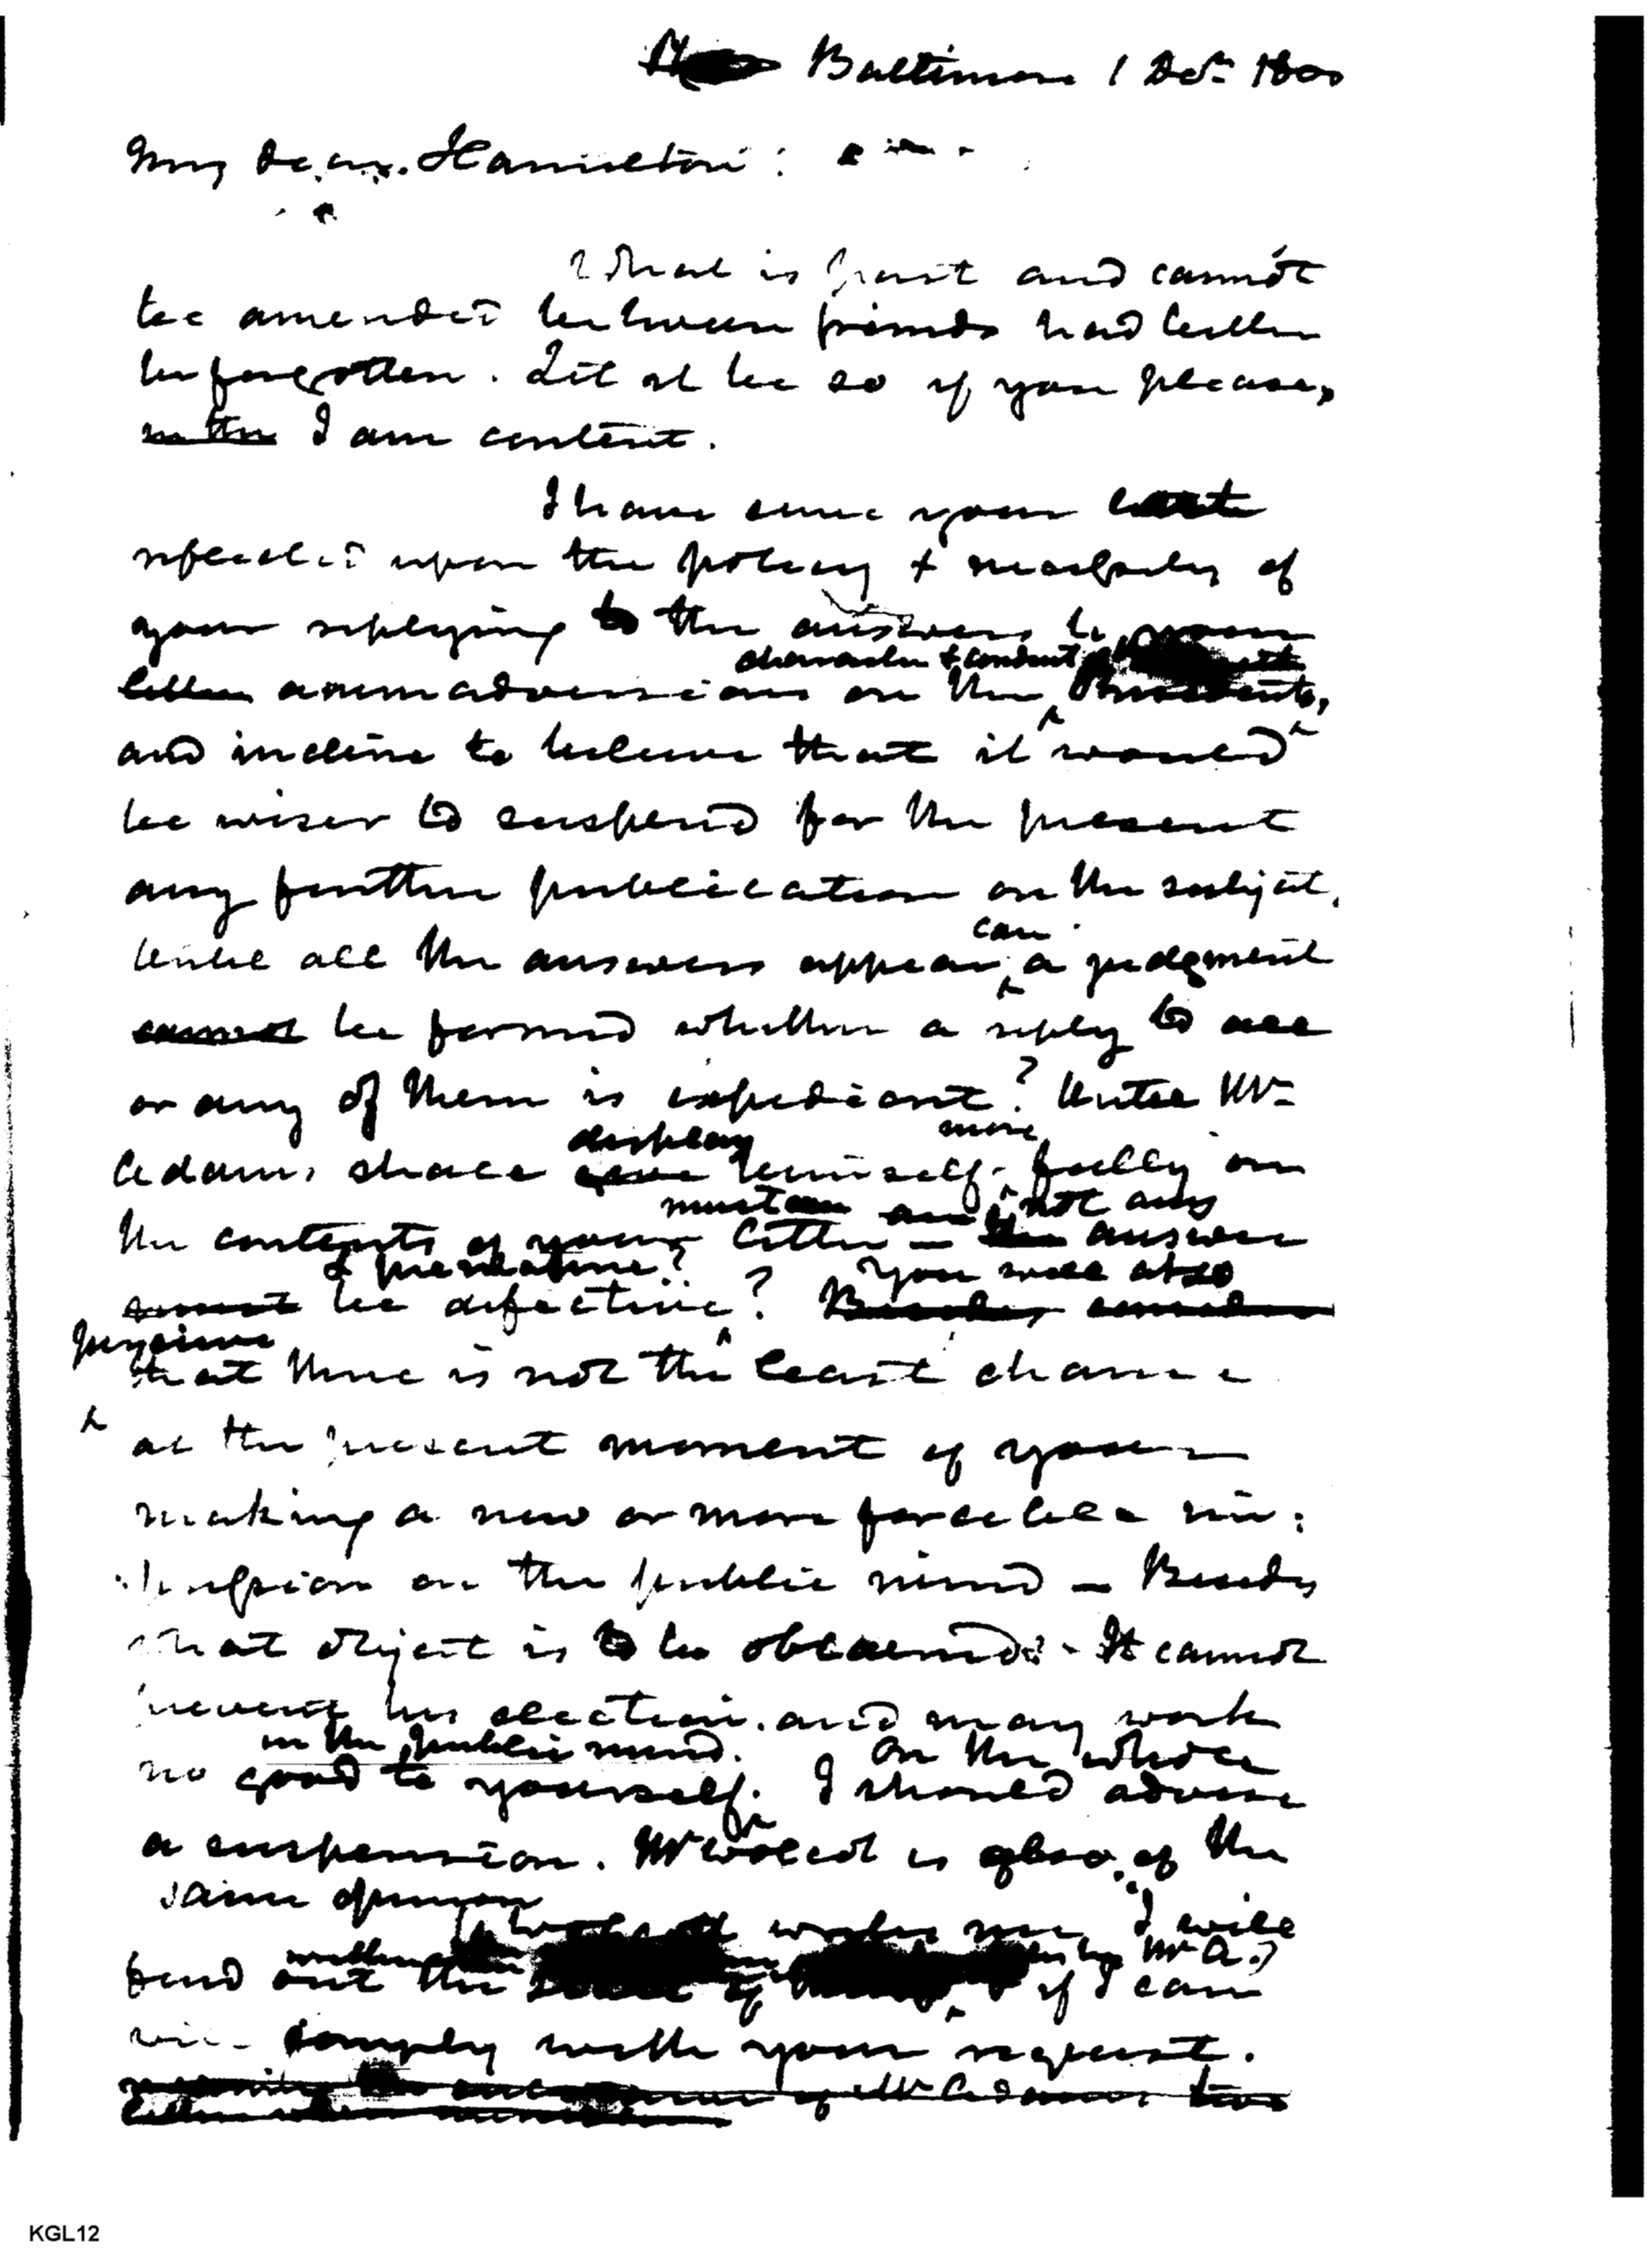 Baltimore 1 Decr. 1800
My dear Hamilton:
What is past and cannot
be amended between friends had better
be forgotten. Let it be so if you please,
I am content.
I have since your
reflected upon the policy & necessity of
your replying to the answers to your
character & conduct of
letter animadversions on the President,
and incline to believe that it would
be wiser to suspend for the present
any further publication on the subject.
can
Until all the answers appear a judgment
cannot be formed whether a reply to all
or any of them is expedient? Until Mr
display more
Adams shall himself fully on
must not any
the contents of your letter — answer
& premature? You will also
must be defective? Besides consider
perceive
that there is not the least chance
at the present moment of your
making a new or more forcible im:
pression on the public mind — Besides
what object is to be obtained? - It cannot
prevent his election, and may work
in the public mind. On the whole
no good to yourself. I should advise
a suspension. Mr Wolcott is also of the
same opinion
I will
whether by Mr A.)
find out the of if I can
will comply with your request.
of Mr Adams two
letters when
KGL12